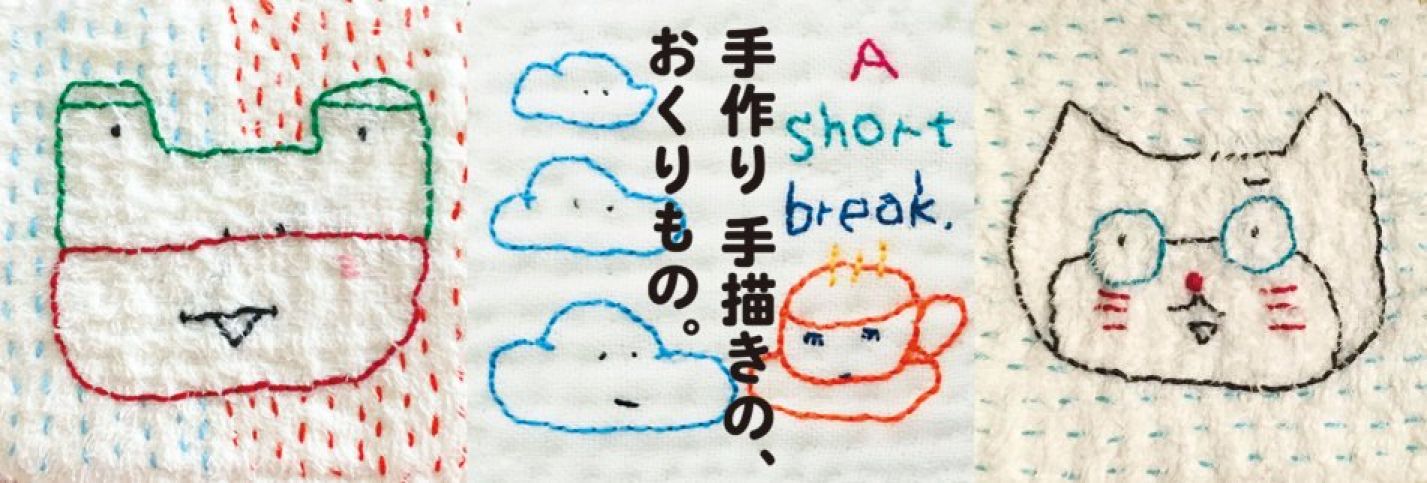 手作り 手描きの、
おくりもの。
A
short
break.